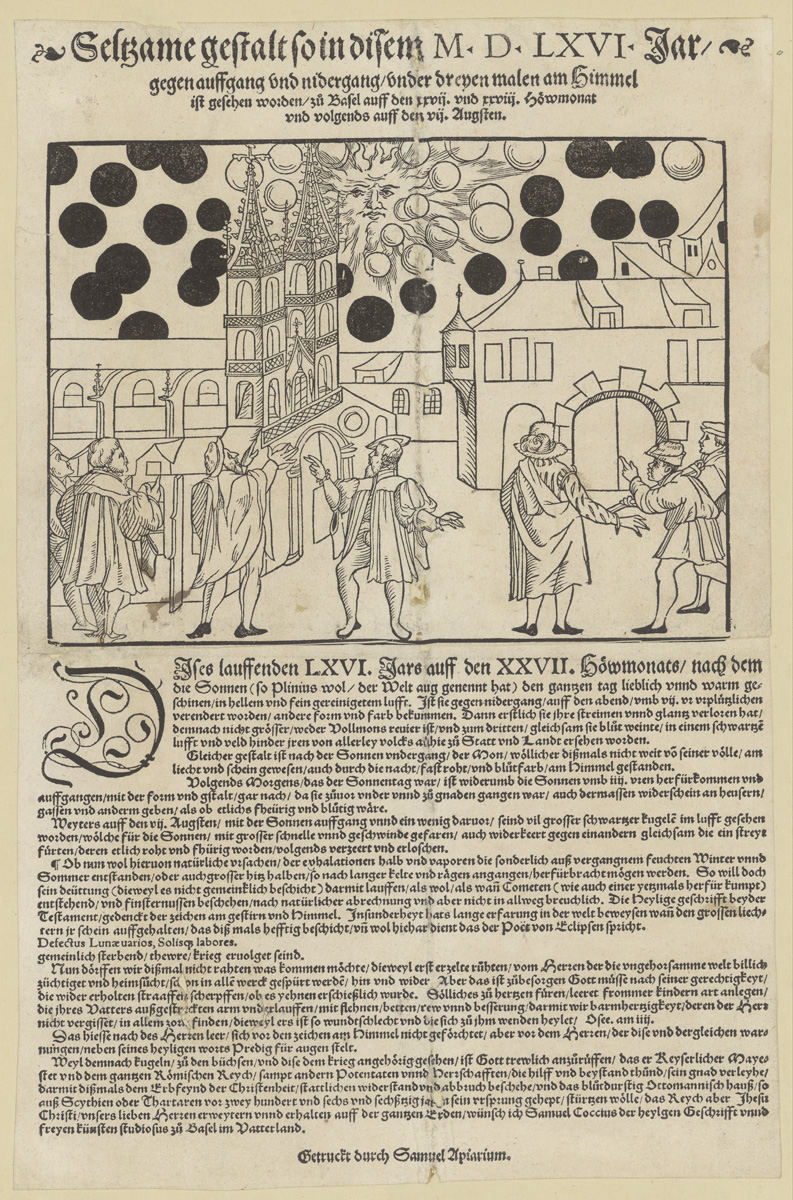 Seltzame gestalt so in disem M. D. LXVI. Jar/
gegen auffgang vnd nidergang/vnder dreyen malen am Himmel
ist gesehen worden/zů Basel auff den xxvij. vnd xxviij. Höwmonat
vnd volgends auff den vij. Augsten.
DIses lauffenden LXVI. Jars auff den XXVII. Höwmonats/ nach dem
die Sonnen (so Plinius wol/ der Welt aug genennt hat) den gantzen tag lieblich vnnd warm ge-
schinen/in hellem vnd fein gereinigetem lufft. Ist sie gegen nidergang/auff den abend/vmb vij. vr vrplützlichen
verendert worden/andere form vnd farb bekummen. Dann erstlich sie jhre streimen vnnd glantz verloren hat/
demnach nit grösser/weder Vollmons reuier ist/vnd zum dritten/gleichsam sie blůt weinte/in einem schwartzē
lufft vnd veld hinder jren von allerley volcks alhie zů Statt vnd Landt ersehen worden.
Gleicher gestalt ist nach der Sonnen vndergang/der Mon/wöllicher dißmals nicht weit vō seiner völle/am
liecht vnd schein gewesen/auch durch die nacht/fast roht/vnd blůtfarb/am Himmel gestanden.
Volgends Morgens/das der Sonnentag war/ist widerumb die Sonnen vmb iiij. vren herfürkommen vnd
auffgangen/mit der form vnd gstalt/gar nach/da sie zůuor vnder vnnd zů gnaden gangen war/auch dermassen widerschein an heusern/
gassen vnd anderm geben/als ob etlichs fheürig vnd blůtig wäre.
Weyters auff den vij. Augsten/mit der Sonnen auffgang vnnd ein wenig daruor/seind vil grosser schwartzer kugelē im lufft gesehen
worden/wölche für die Sonnen/mit grosser schnelle vnnd geschwinde gefaren/auch widerkeert gegen einandern gleichsam die ein streyt
fürten/deren etlich roht vnd fhürig worden/volgends verzeert vnd erloschen.
¶ Ob nun wol hieruon natürliche vrsachen/der exhalationen halb vnd vaporen die sonderlich auß vergangnem feuchten Winter vnnd
Sommer entstanden/oder auch grosser hitz halben/so nach langer kelte vnd rägen angangen/herfürbracht mögen werden. So will doch
sein deüttung (dieweyl es nicht gemeinklich beschicht) darmit lauffen/als wol/als wañ Cometen (wie auch einer yetzmals herfür kumpt)
entstehend/vnd finsternussen beschehen/nach natürlicher abrechnung vnd aber nicht in allweg breuchlich. Die Heylige geschrifft beyder
Testament/gedenckt der zeichen am gestirn vnd Himmel. Insunderheyt hats lange erfarung in der welt beweysen wañ den grossen liech-
tern jr schein auffgehalten/das diß mals hefftig beschicht/vñ wol hiehar dient das der Poët von Eclipsen spricht.
Defectus Lunæ uarios, Solisq; labores.
gemeinlich sterbend/thewre/krieg eruolget seind.
Nun dörffen wir dißmal nicht rahten was kommen möchte/dieweyl erst erzelte růhten/vom Herren der die vngehorsamme welt billich
züchtiget vnd heimsücht/schon in allē werck gespürt werdē/hin vnd wider. Aber das ist zübesorgen Gott müsse nach seiner gerechtigkeyt/
die wider erholten straaffen scherpffen/ob es yehnen erschießlich wurde. Sölliches zů hertzen füren/leeret frommer kindern art anlegen/
die jhres Vatters außgestreckten arm vnd erlauffen/mit flehnen/betten/rew vnnd besserung/darmit wir barmhertzigkeyt/deren der Herr
nicht vergisset/in allem zorn finden/dieweyl ers ist so wundtschlecht vnd die sich zů jhm wenden heylet/ Osee. am iiij.
Das hiesse nach des Herren leer/sich vor den zeichen am Himmel nicht geförchtet/aber vor dem Herren/der dise vnd dergleichen war-
nungen/neben seines heyligen worts Predig für augen stelt.
Weyl demnach kugeln/zů den büchsen/vnd dise dem krieg angehörig gesehen/ist Gott trewlich anzürüffen/das er Keyserlicher Maye-
stet vnd dem gantzen Römischen Reych/sampt andern Potentaten vnnd Herrschafften/die hilff vnd beystand thünd/sein gnad verleyhe/
darmit dißmals dem Erbfeynd der Christenheit/stattlichen widerstand vnd abbruch beschehe/vnd das blůtdurstig Ottomannisch hauß/so
auß Scythien oder Thartaren vor zwey hundert vnd sechs vnd sechßtzig jarn sein vrsprung gehept/stürtzen wölle/das Reych aber Jhesu
Christi/vnsers lieben Herren erweytern vnnd erhalten auff der gantzen Erden/wünsch ich Samuel Coccius der heylgen Geschrifft vnnd
freyen künsten studiosus zů Basel im Vatterland.
Getruckt durch Samuel Apiarium.